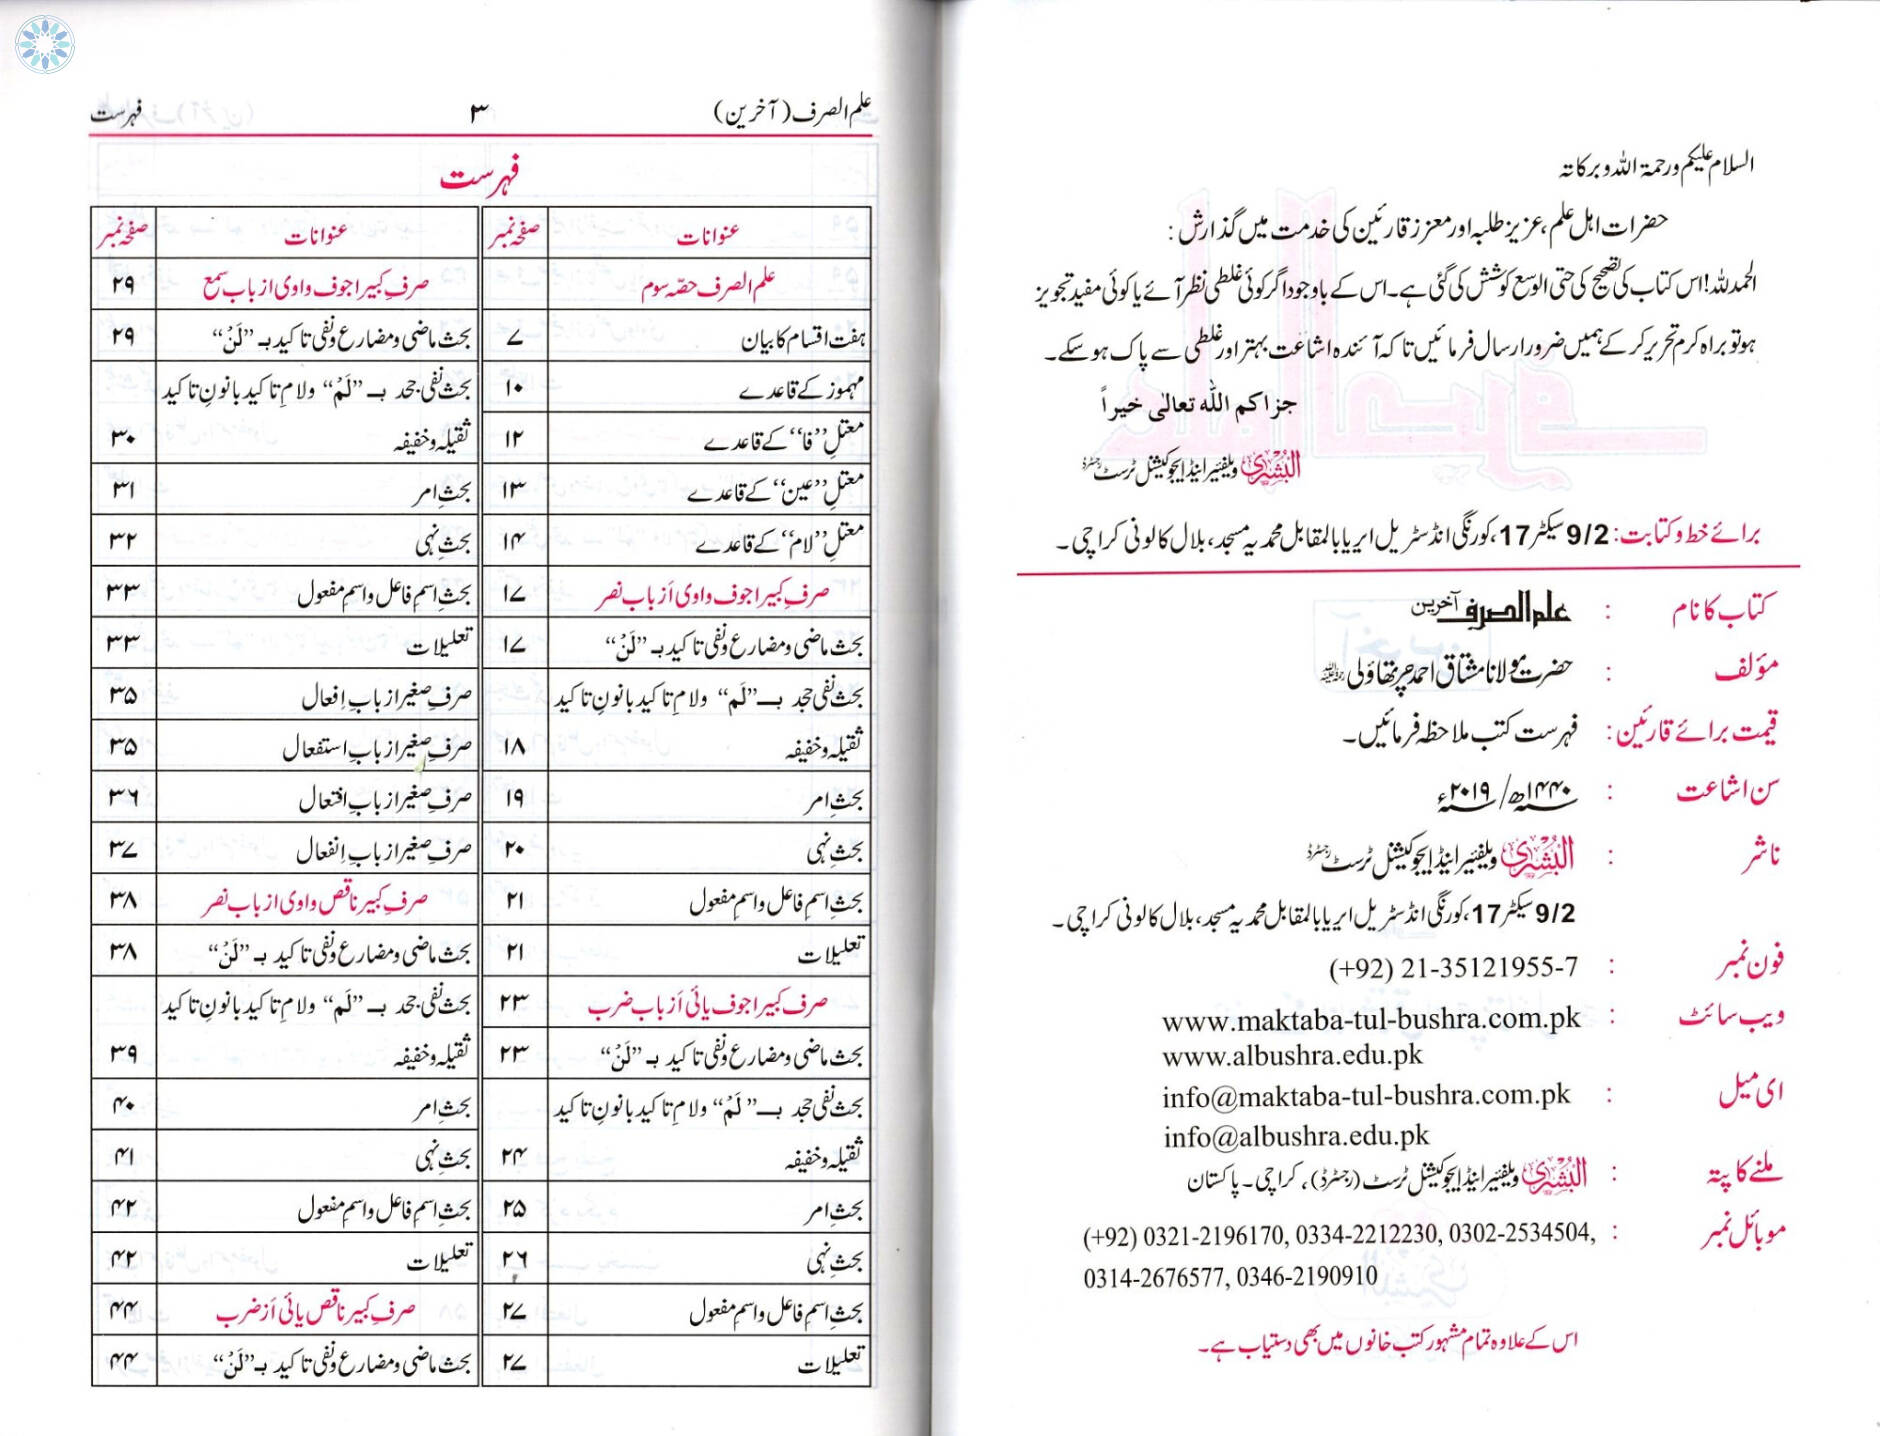 السلام علیکم ورحمة اللہ وبرکاتہ
حضرات اہل علم، عزیز طلبہ اور معزز قارئین کی خدمت میں گذارش :
الحمدللہ! اس کتاب کی تصحیح کی حتی الوسع کوشش کی گئی ہے۔ اس کے باوجود اگر کوئی غلطی نظر آئے یا کوئی مفید تجویز
ہو تو براہ کرم تحریر کر کے ہمیں ضرور ارسال فرمائیں تاکہ آئندہ اشاعت بہتر اور غلطی سے پاک ہو سکے۔
جزاکم اللہ تعالی خیراً
البُشریٰ ویلفیئر اینڈ ایجوکیشنل ٹرسٹ رجسٹرڈ
برائے خط و کتابت: 9/2 سیکٹر 17، کورنگی انڈسٹریل ایریا بالمقابل محمدیہ مسجد، بلال کالونی کراچی۔
کتاب کا نام : علم الصرف آخرین
مؤلف : حضرت مولانا مشتاق احمد چرتھاؤلی
قیمت برائے قارئین: فہرست کتب ملاحظہ فرمائیں۔
سن اشاعت : ۱۴۴۰ھ/ ۲۰۱۹ء
ناشر : البُشریٰ ویلفیئر اینڈ ایجوکیشنل ٹرسٹ رجسٹرڈ
9/2 سیکٹر 17، کورنگی انڈسٹریل ایریا بالمقابل محمدیہ مسجد، بلال کالونی کراچی۔
فون نمبر : (+92) 21-35121955-7
ویب سائٹ : www.maktaba-tul-bushra.com.pk
www.albushra.edu.pk
ای میل : info@maktaba-tul-bushra.com.pk
info@albushra.edu.pk
ملنے کا پتہ : البُشریٰ ویلفیئر اینڈ ایجوکیشنل ٹرسٹ (رجسٹرڈ)، کراچی۔ پاکستان
موبائل نمبر : (+92) 0321-2196170, 0334-2212230, 0302-2534504,
0314-2676577, 0346-2190910
اس کے علاوہ تمام مشہور کتب خانوں میں بھی دستیاب ہے۔
علم الصرف (آخرین) ۳ فہرست
فہرست
عنوانات صفحہ نمبر
علم الصرف حصّہ سوم
ہفت اقسام کا بیان ۷
مہموز کے قاعدے ۱۰
معتلِ ”فا“ کے قاعدے ۱۲
معتلِ ”عین“ کے قاعدے ۱۳
معتلِ ”لام“ کے قاعدے ۱۴
صرفِ کبیر اجوف واوی اَز باب نصر ۱۷
بحث ماضی و مضارع و نفی تاکید بـ ”لَنْ“ ۱۷
بحث نفی جحد بـ ”لَم“ ولامِ تاکید بانونِ تاکید
ثقیلہ و خفیفہ ۱۸
بحثِ امر ۱۹
بحثِ نہی ۲۰
بحثِ اسمِ فاعل و اسمِ مفعول ۲۱
تعلیلات ۲۱
صرف کبیر اجوف یائی اَز باب ضرب ۲۳
بحث ماضی و مضارع و نفی تاکید بـ ”لَنْ“ ۲۳
بحث نفی جحد بـ ”لَمْ“ ولامِ تاکید بانونِ تاکید
ثقیلہ و خفیفہ ۲۴
بحثِ امر ۲۵
بحثِ نہی ۲۶
بحثِ اسمِ فاعل و اسمِ مفعول ۲۷
تعلیلات ۲۷
عنوانات صفحہ نمبر
صرفِ کبیر اجوف واوی از باب سمع ۲۹
بحث ماضی و مضارع و نفی تاکید بـ ”لَنْ“ ۲۹
بحث نفی جحد بـ ”لَمْ“ ولامِ تاکید بانونِ تاکید
ثقیلہ و خفیفہ ۳۰
بحثِ امر ۳۱
بحثِ نہی ۳۲
بحثِ اسمِ فاعل و اسمِ مفعول ۳۳
تعلیلات ۳۳
صرفِ صغیر از بابِ اِفعال ۳۵
صرفِ صغیر از بابِ استفعال ۳۵
صرفِ صغیر از بابِ افتعال ۳۶
صرفِ صغیر از بابِ اِنفعال ۳۷
صرفِ کبیر ناقص واوی از باب نصر ۳۸
بحث ماضی و مضارع و نفی تاکید بـ ”لَنْ“ ۳۸
بحث نفی جحد بـ ”لَم“ ولامِ تاکید بانونِ تاکید
ثقیلہ و خفیفہ ۳۹
بحثِ امر ۴۰
بحثِ نہی ۴۱
بحثِ اسمِ فاعل و اسمِ مفعول ۴۲
تعلیلات ۴۲
صرفِ کبیر ناقص یائی اَز ضرب ۴۴
بحث ماضی و مضارع و نفی تاکید بـ ”لَنْ“ ۴۴